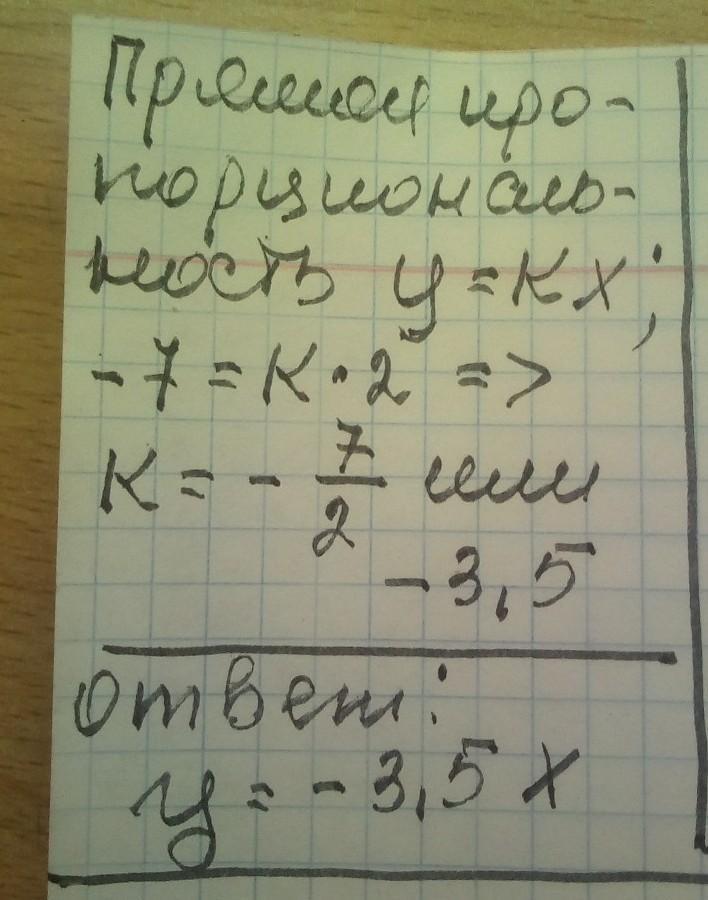 Прямая про-
порциональ-
ность y = kx;
-7 = k · 2 =>
k = - 7/2 или
- 3,5
ответ:
y = - 3,5 x